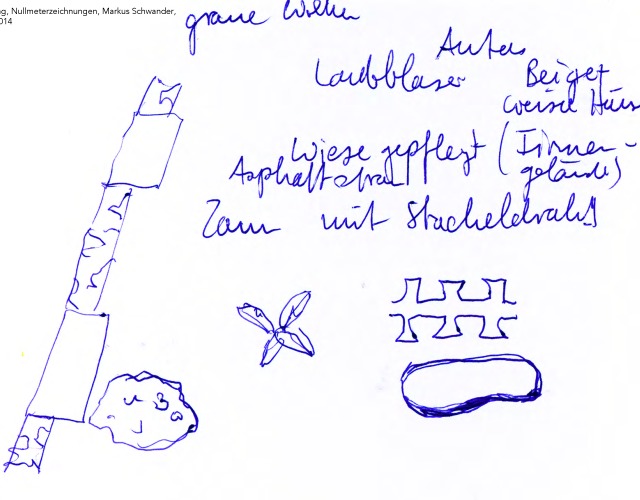 g, Nullmeterzeichnungen, Markus Schwander,
014
graue Wolken
Autos
Laubbläser Beiges
weise Häus
Wiese gepflegt (Firmen-
Asphaltstraße gelände)
Zaun mit Stacheldraht